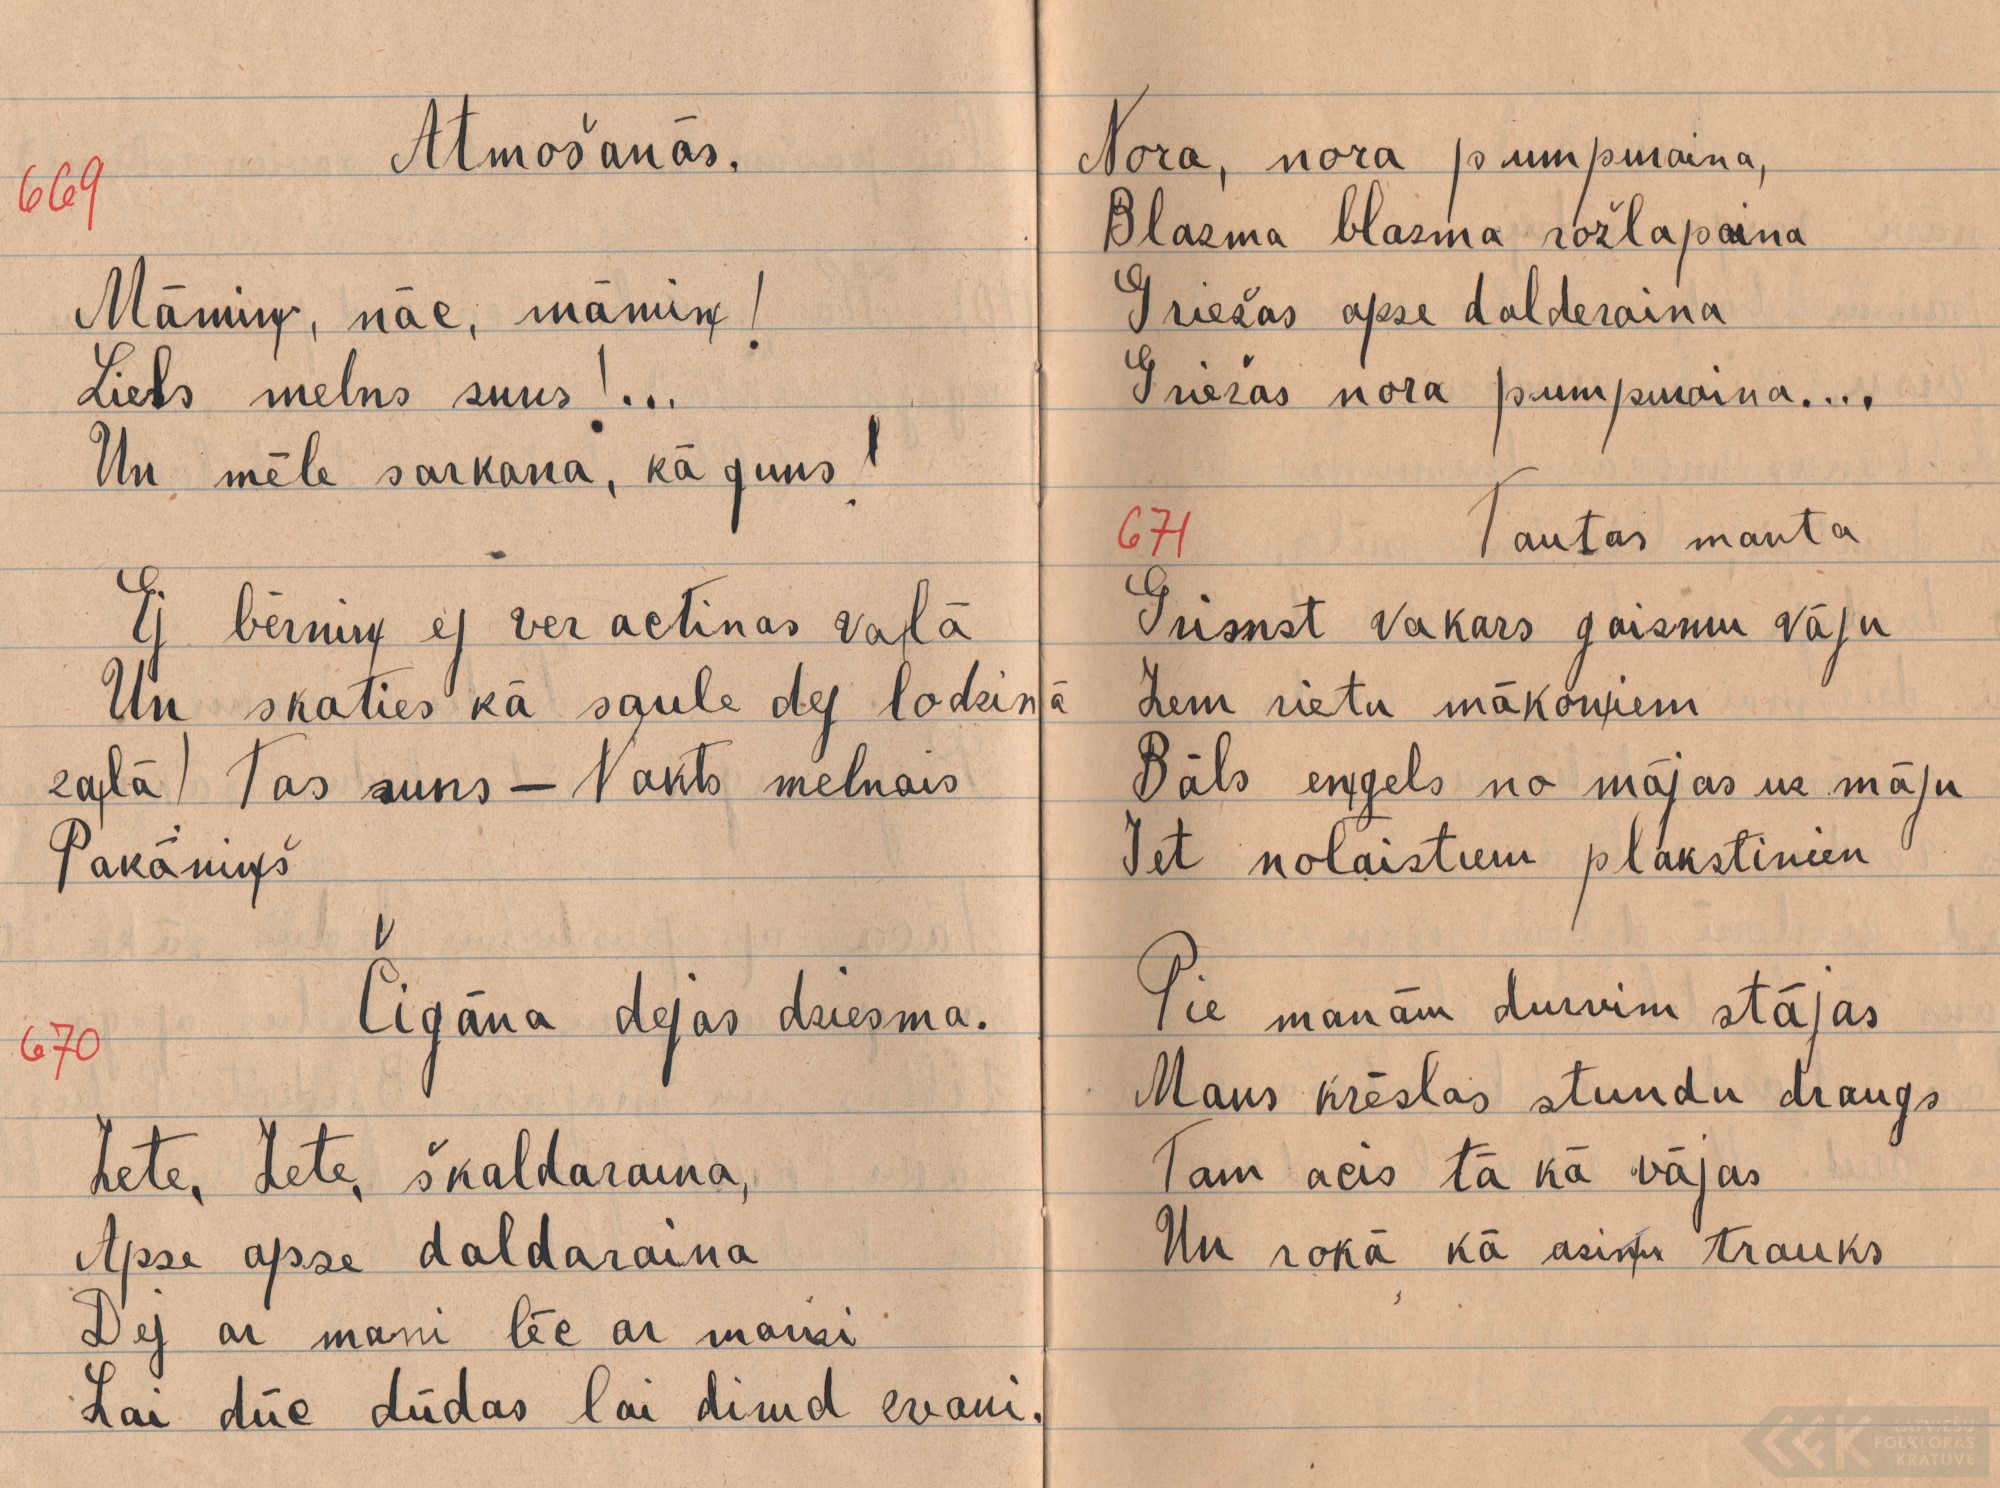 Atmošanās.
669
Māmiņ, nāc, māmiņ!
Liels melns suns!...
Un mēle sarkana, kā guns!
Ej bērniņ ej ver actinas vaļā
Un skaties kā saule dej lodziņā
zaļā! Tas suns – Nakts melnais
Pakāniņš
Čigāna dejas dziesma.
670
Zete, Zete, škaldaraina,
Apse apse daldaraina
Dej ar mani lēc ar manzi
Lai dūc dūdas lai dimd zvani.
Nora, nora pumpuraina,
Blazma blazma rožlapaina
Griežas apse dalderaina
Griežas nora pumpuraina....
671
Tautas manta
Grimst vakars gaismu vāju
Zem rietu mākoņiem
Bāls eņgels no mājas uz māju
Iet nolaistiem plakstinien
Pie manām durvim stājas
Mans krēslas stundu draugs
Tam acis tā kā vājas
Un rokā kā asiņu trauks
LATVIEŠU
FOLKLORAS
KRĀTUVE